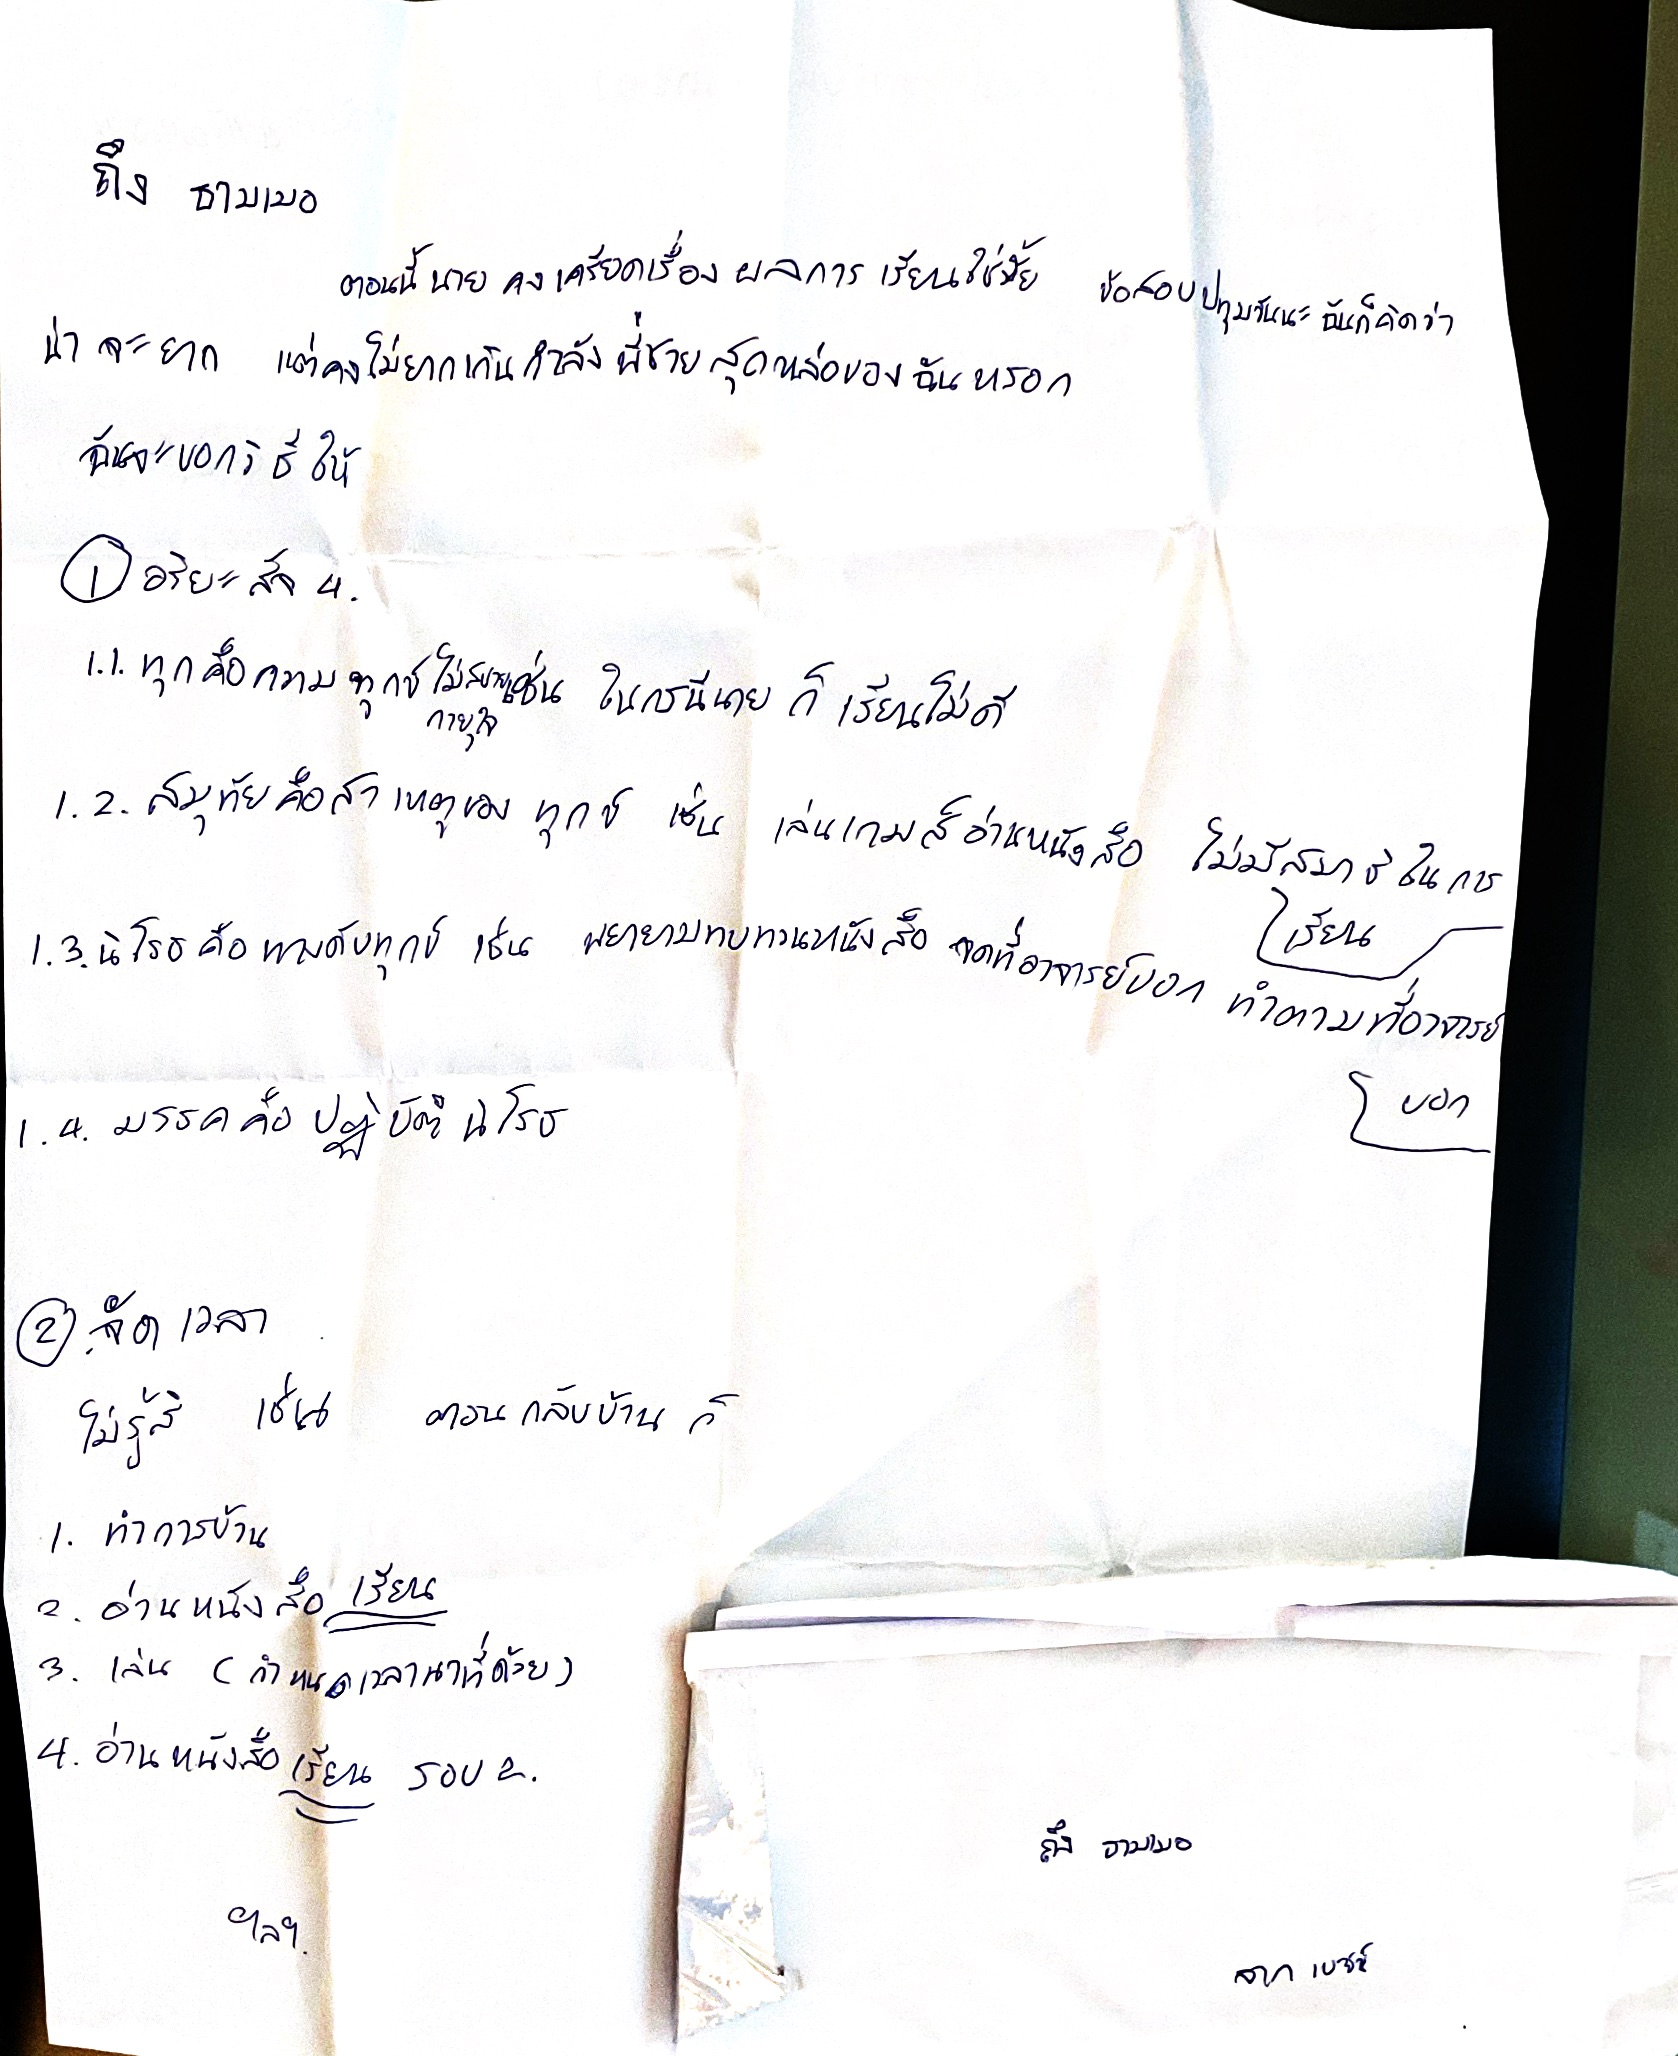 ถึง ธามเมอ
ตอนนี้ นาย คง เครียดเรื่อง ผลการ เรียนใช่มั้ย ข้อสอบปทุมวันนะ ฉันก็คิดว่า
น่า จะ ยาก แต่คงไม่ยากเกินกำลัง พี่ชาย สุดหล่อของ ฉัน หรอก
ฉันจะบอกวิธี ให้
① อริยะสัจ 4.
1.1. ทุกคือความ ทุกข์ ไม่สบายเช่น ในกรณีนาย ก็ เรียนไม่ดี
กายใจ
1.2. สมุทัยคือสาเหตุของ ทุกข์ เช่น เล่นเกมส์ อ่านหนังสือ ไม่มีสมาธิ ในการ
เรียน
1.3. นิโรธ คือ ทางดับทุกข์ เช่น พยายามทบทวนหนังสือ จดที่อาจารย์บอก ทำตามที่อาจารย์
บอก
1.4. มรรค คือ ปฏิบัติ นิโรธ
② จัด เวลา
ไม่รู้สิ เช่น ตอน กลับบ้าน ก็
1. ทำการบ้าน
2. อ่าน หนังสือ เรียน
3. เล่น (กำหนดเวลานาทีด้วย)
4. อ่าน หนังสือ เรียน รอบ 2.
ฯลฯ.
ถึง ธามเมอ
จาก